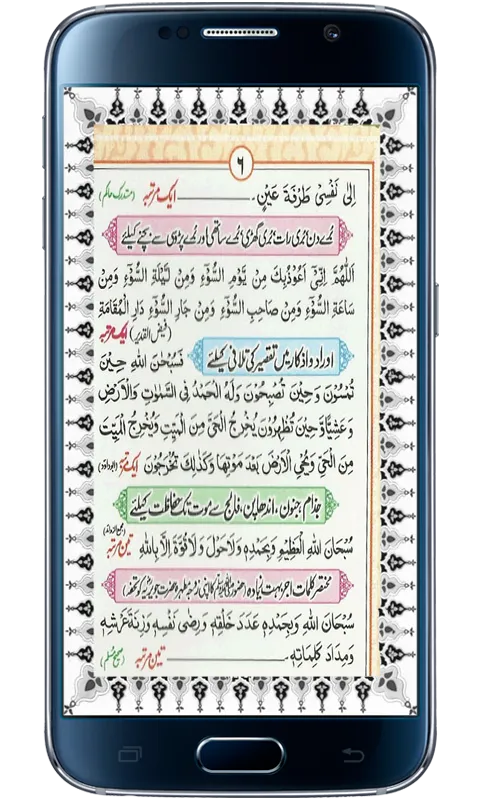 ٦
اِلٰى نَفْسِىْ طَرْفَةَ عَيْنٍ۔ ایک مرتبہ (مستدرک حاکم)
بُرے دن بُری رات بُری گھڑی بُرے ساتھی اور بُرے پڑوسی سے بچنے کیلئے
اَللّٰهُمَّ اِنِّىْ اَعُوْذُبِكَ مِنْ يَّوْمِ السُّوْٓءِ وَمِنْ لَّيْلَةِ السُّوْٓءِ وَمِنْ
سَاعَةِ السُّوْٓءِ وَمِنْ صَاحِبِ السُّوْٓءِ وَمِنْ جَارِ السُّوْٓءِ دَارِ الْمُقَامَةِ
(فیض القدیر) ایک مرتبہ
اوراد و اذکار میں تقصیر کی تلافی کیلئے فَسُبْحٰنَ اللهِ حِيْنَ
تُمْسُوْنَ وَحِيْنَ تُصْبِحُوْنَ وَلَهُ الْحَمْدُ فِى السَّمٰوٰتِ وَالْاَرْضِ
وَعَشِيًّا وَّحِيْنَ تُظْهِرُوْنَ يُخْرِجُ الْحَىَّ مِنَ الْمَيِّتِ وَيُخْرِجُ الْمَيِّتَ
مِنَ الْحَىِّ وَيُحْىِ الْاَرْضَ بَعْدَ مَوْتِهَا وَكَذٰلِكَ تُخْرَجُوْنَ ایک مرتبہ (ابوداؤد)
جذام جنون، اندھا پن، فالج سے موت تک حفاظت کیلئے
سُبْحَانَ اللهِ الْعَظِيْمِ وَبِحَمْدِهٖ وَلَاحَوْلَ وَلَاقُوَّةَ اِلَّا بِاللهِ تین مرتبہ
مختصر کلمات اجر بہت زیادہ
سُبْحَانَ اللهِ وَبِحَمْدِهٖ عَدَدَ خَلْقِهٖ وَرِضٰى نَفْسِهٖ وَزِنَةَ عَرْشِهٖ
وَمِدَادَ كَلِمَاتِهٖ۔ تین مرتبہ (صحیح مسلم)